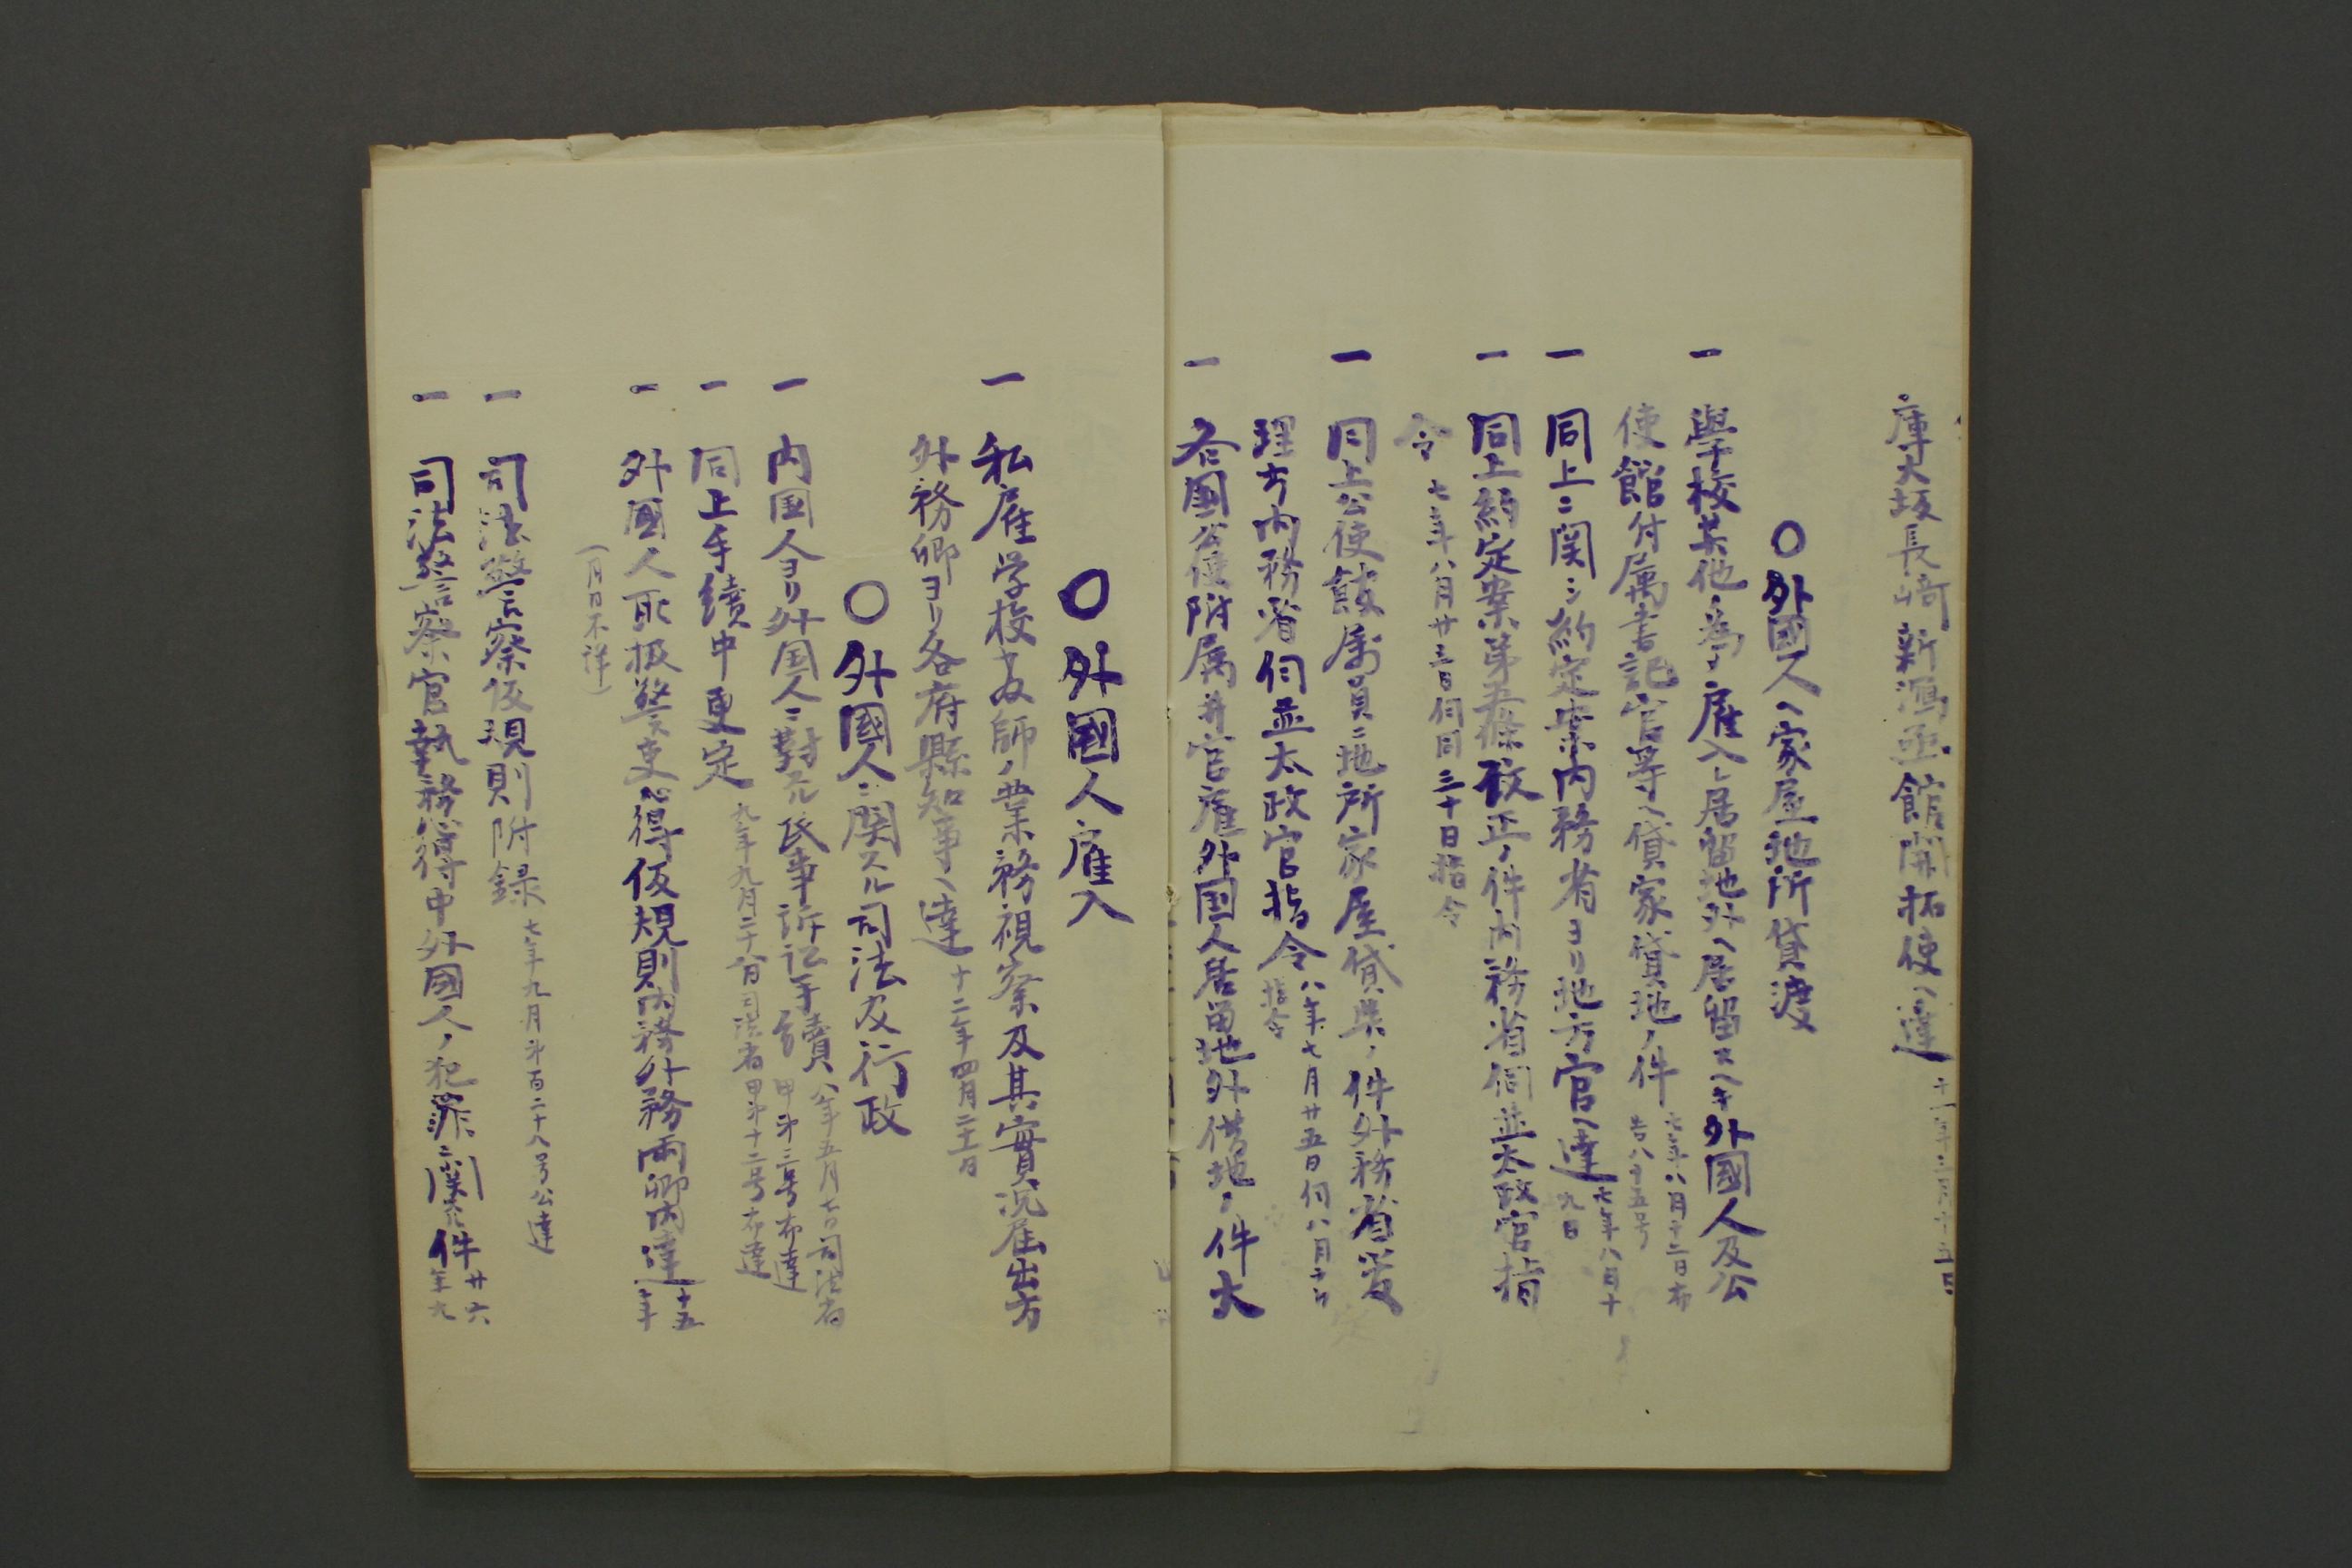 庫大坂長崎新潟函館開拓使ヘ達 十一年三月十五日
〇外國人ヘ家屋地所貸渡
一 學校其他ノ為メ雇入レ居留地外ヘ居留スヘキ外國人及公
使館付属書記官等ヘ貸家貸地ノ件 七年八月十二日布
告八十五号
一 同上ニ関シ約定案内務省ヨリ地方官ヘ達 七年八月十
九日
一 同上約定案第五條改正ノ件内務省伺並太政官指
令 七年八月廿三日伺同三十日指令
一 同上公使館属員ニ地所家屋貸與ノ件外務省
理方内務省伺並太政官指令 八年七月廿五日伺八月
指令
一 各國公使附属并官雇外国人居留地外借地ノ件太
〇外國人雇入
一 私雇学校教師ノ業務視察及其實況届出方
外務卿ヨリ各府縣知事ヘ達 十二年四月二十一日
〇外國人ニ関スル司法及行政
一 内国人ヨリ外国人ニ對スル民事訴訟手續 八年五月七日司法省
甲第三号布達
一 同上手續中更定 九年九月二十八日司法省甲第十二号布達
一 外國人取扱警吏心得仮規則内務外務両卿内達 十五
年
(月日不詳)
一 司法警察仮規則附録 七年九月第百二十八号公達
一 司法警察官執務心得中外國人ノ犯罪ニ関スル件 廿六
年九